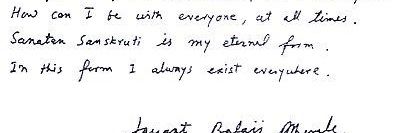 How can I be with everyone, at all times.
Sanatan Sanskruti is my eternal form.
In this form I always exist everywhere.
Jayant Balaji